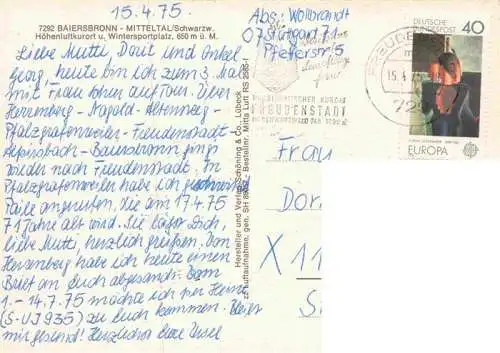 15.4.75
7292 BAIERSBRONN - MITTELTAL/Schwarzw.
Höhenluftkurort u. Wintersportplatz, 650 m ü. M.
Liebe Mutti, Dorit und Onkel
Georg, heute bin ich zum 3. Mal
mit Frau Cohen auf Tour. Über
Herrenberg - Nagold - Altensteig -
Pfalzgrafenweiler - Freudenstadt
Alpirsbach - Baiersbronn ging
wieder nach Freudenstadt. In
Pfalzgrafenweiler habe ich
angerufen, die am 17.4.75
71 Jahre alt wird. Sie läßt Dich,
liebe Mutti, herzlich grüßen. Von
Herrenberg habe ich heute einen
Brief an Euch abgesandt. Vom
1. - 14.7.75 möchte ich per
(S-UJ 935) zu Euch kommen. Bleibt
mir gesund! Herzlichst Eure Ursel
Hersteller und Verlag Schöning & Co., Lübeck
Luftaufnahme, gen. SH Bestellnr. Mitte Luft RS 2595-I
Abs: Wollbrandt
07 Stuttgart 71
Pfeiferstr. 5
FREUDENSTADT
15.4.75
729
DEUTSCHE
BUNDESPOST
40
EUROPA
Frau
Dor
X 11
S